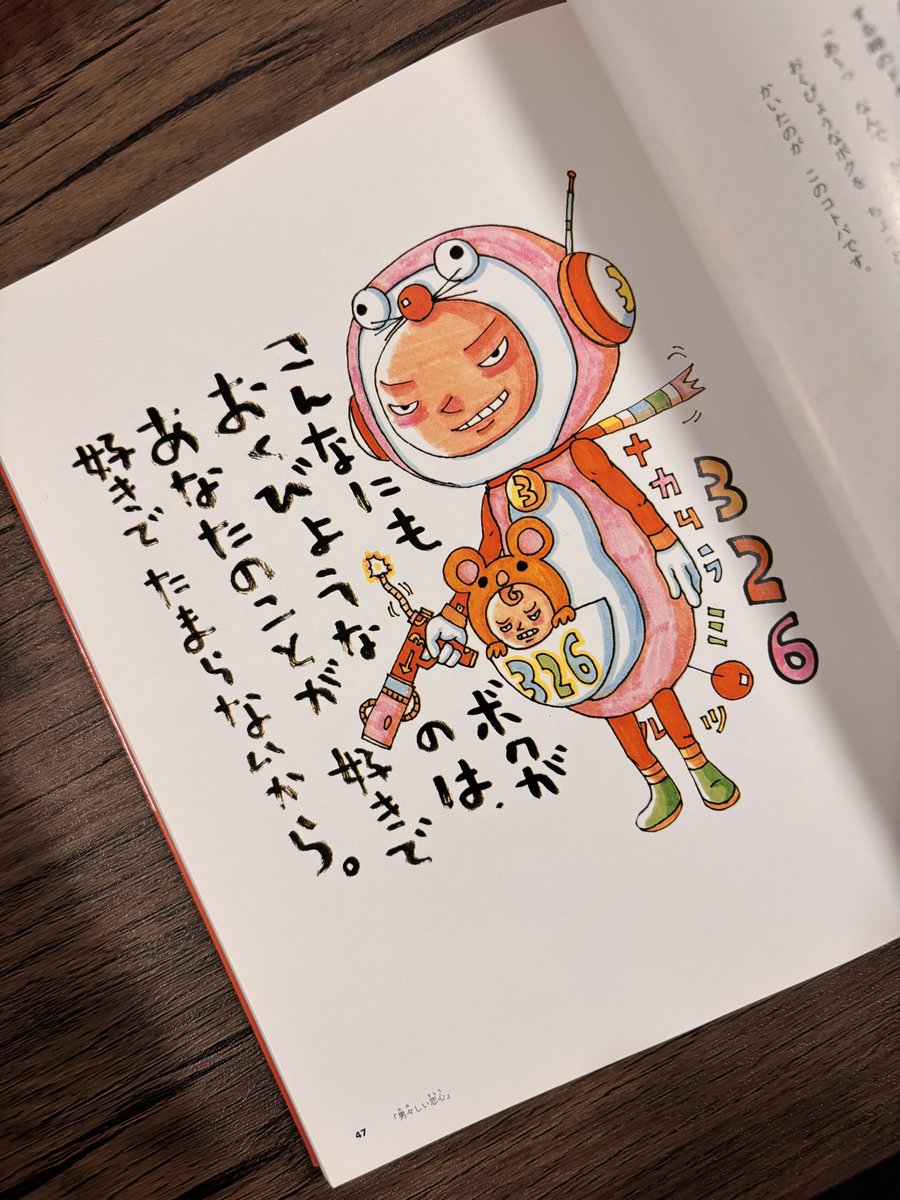 おくびょうなボクを
かいたのが このコトバです。
こんなにも ボクが
おくびょうな のは、
あなたのことが 好きで
好きで たまらないから。
ナカムラミツル
326
3
3
326
「男々しい恋心」
47